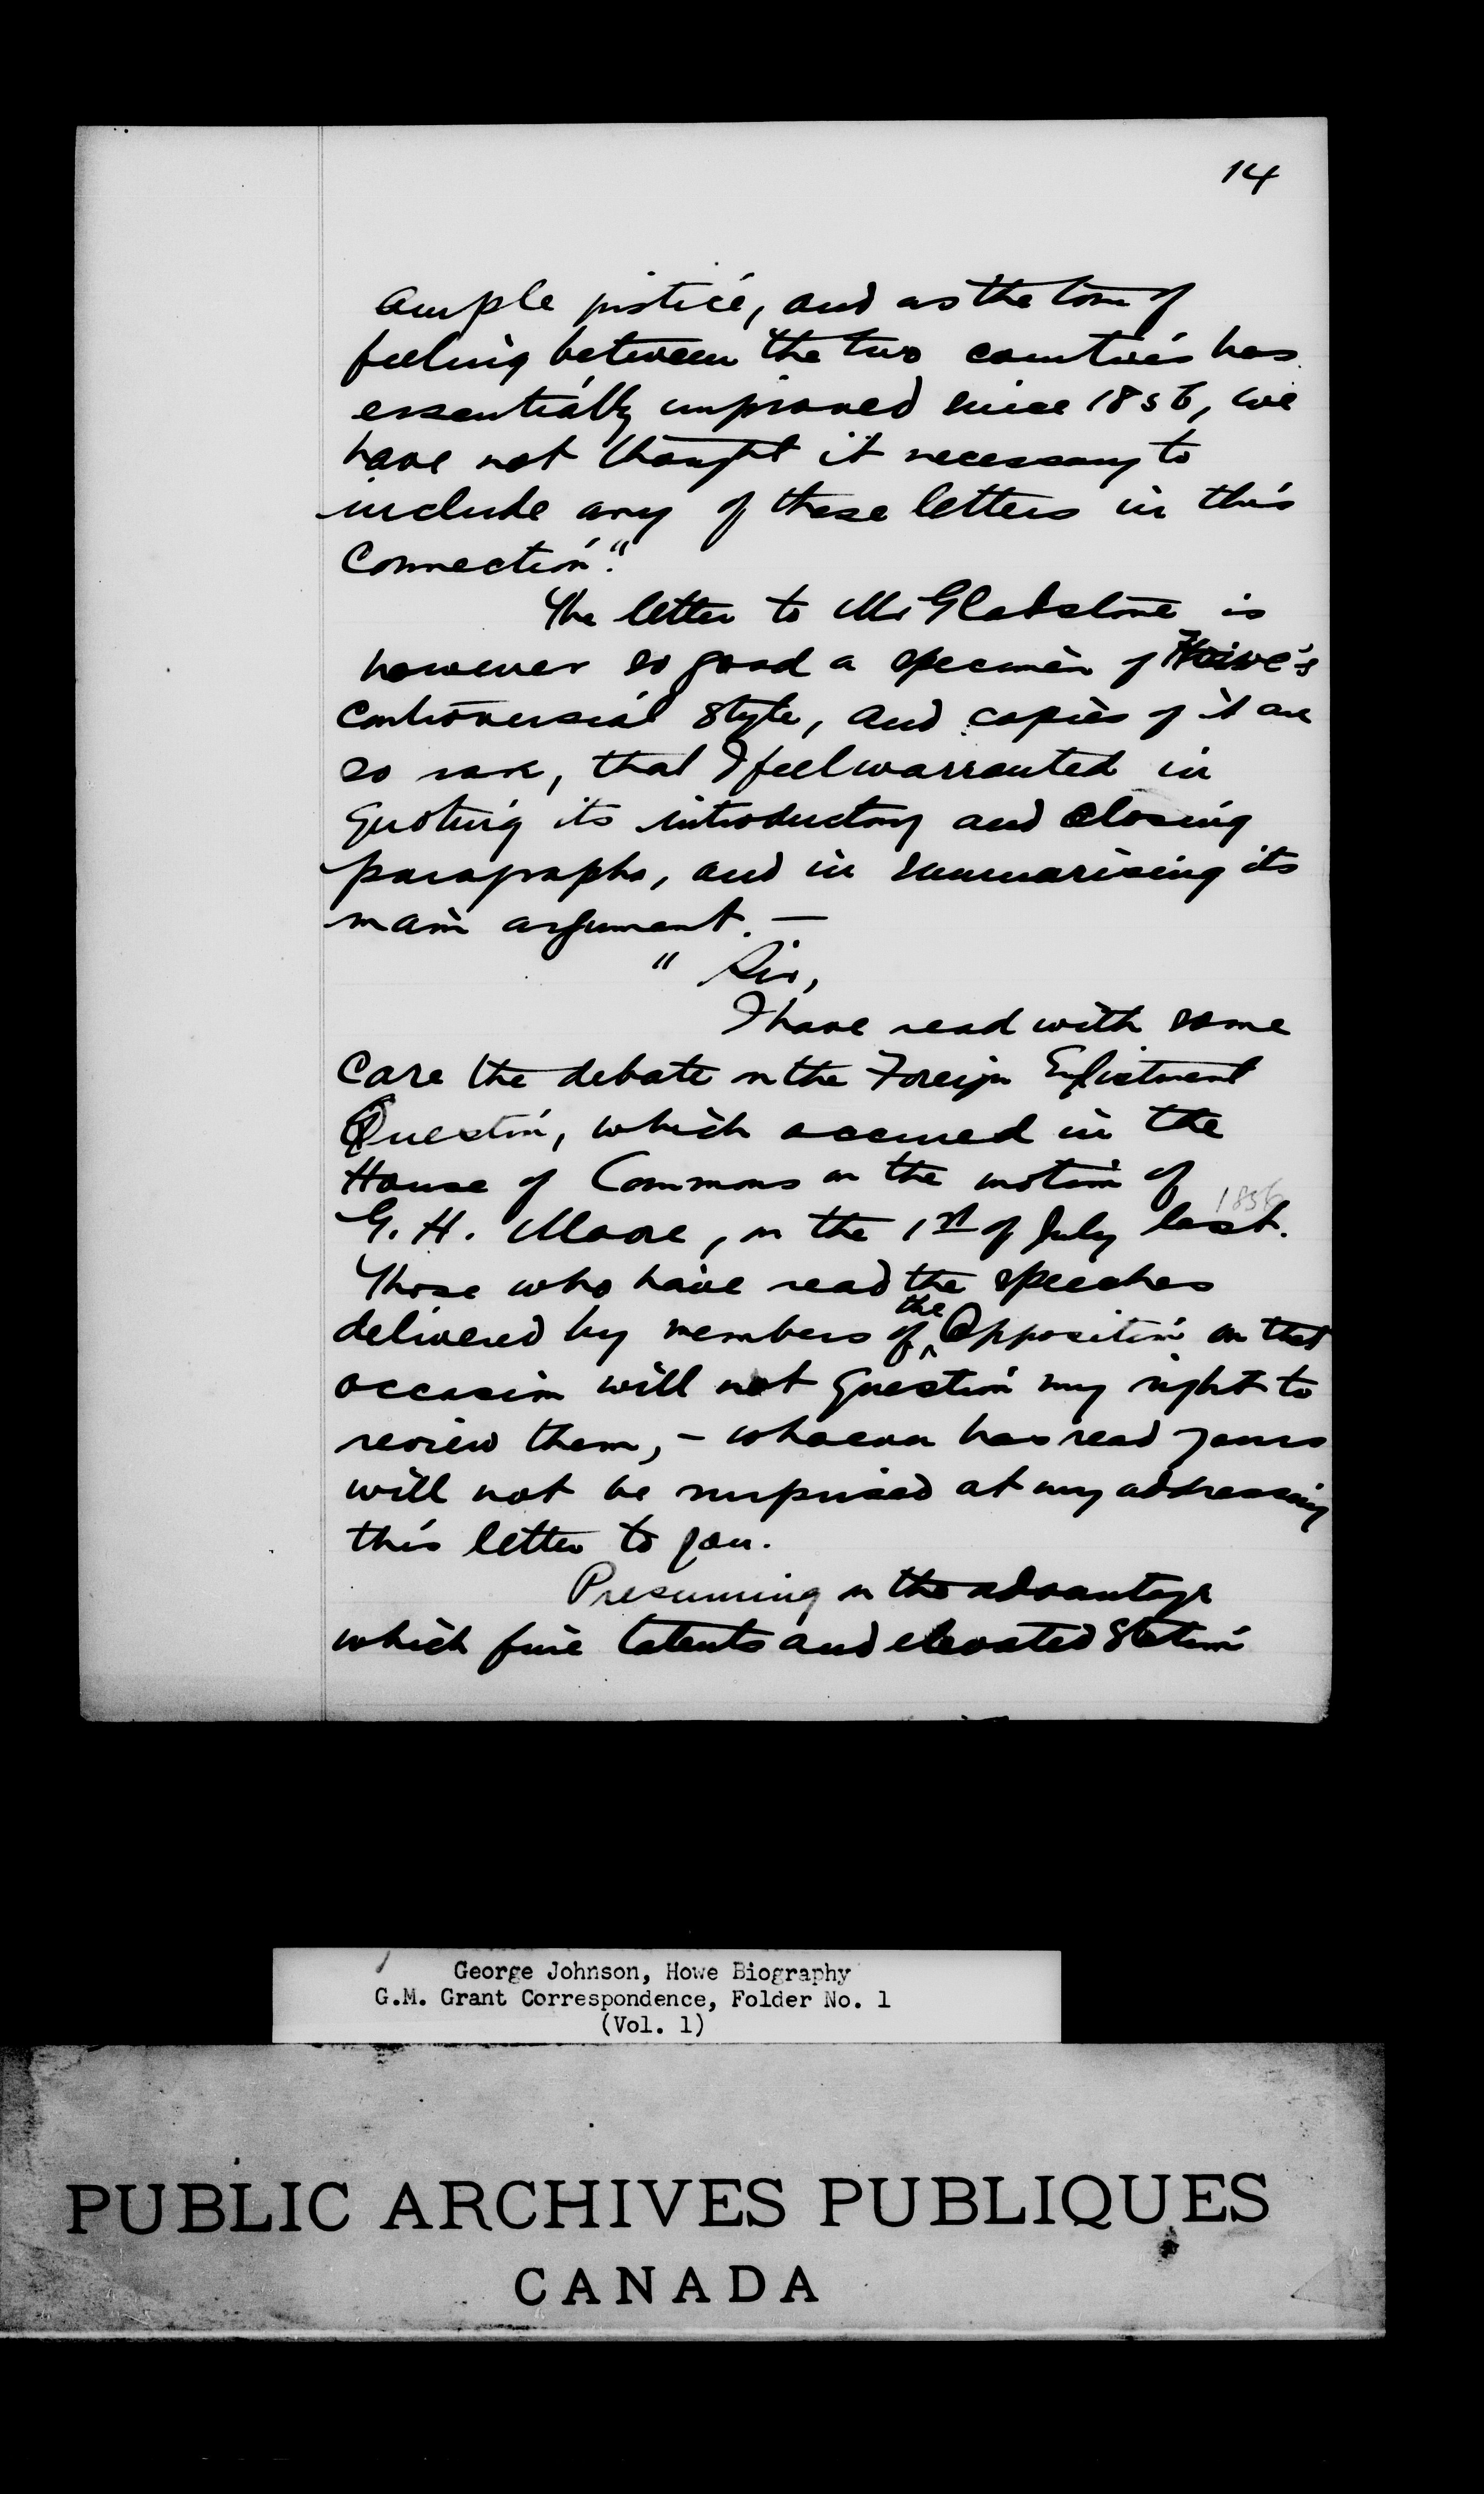 14
ample justice, and as the tone of
feeling between the two countries has
essentially improved since 1856, we
have not thought it necessary to
include any of these letters in this
Connection."
The letter to Mr Gladstone is
however so good a specimen of Howe's
controversial style, and copies of it are
so rare, that I feel warranted in
quoting its introductory and closing
paragraphs, and in summarising its
main argument. —
" Sir,
I have read with some
care the debate on the Foreign Enlistment
Question, which occurred in the
House of Commons on the motion of
1856
G. H. Moore, on the 1st of July last.
Those who have read the speeches
the
delivered by members of ^ Opposition on that
occasion will not question my right to
review them, – whoever has read yours
will not be surprised at my addressing
this letter to you.
Presuming on the advantage
which fine talents and elevated station
George Johnson, Howe Biography
G.M. Grant Correspondence, Folder No. 1
(Vol. 1)
PUBLIC ARCHIVES PUBLIQUES
CANADA